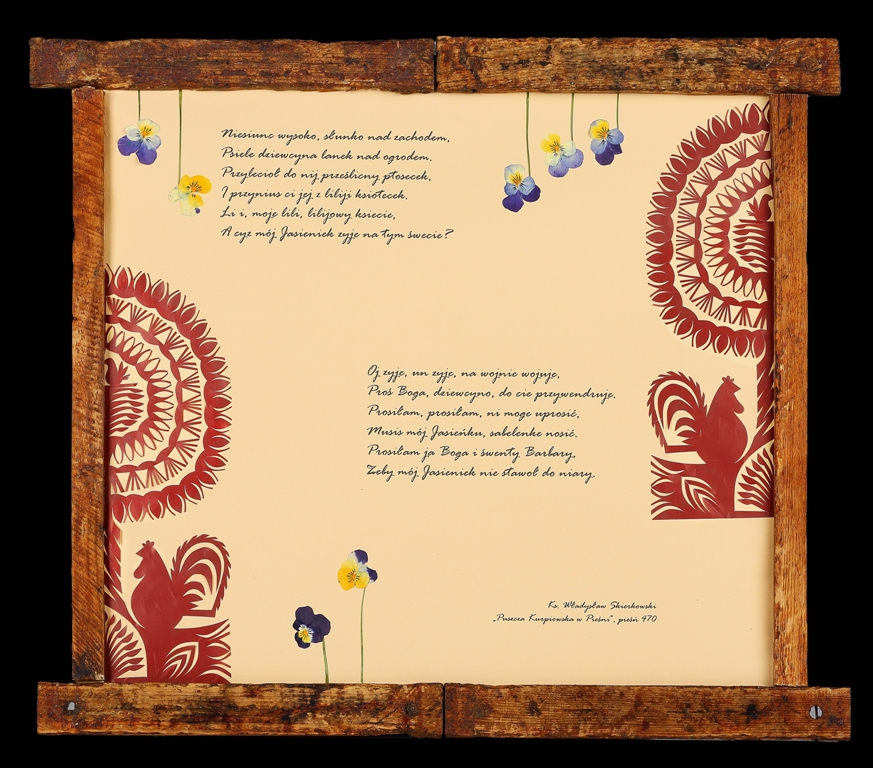 Niesiunc wysoko, słunko nad zachodem,
Psiele dziewcyna lanek nad ogrodem.
Przylecioł do nij prześlicny ptosecek,
I przynius ci jej z liliji ksiotecek.
Li i, moje lili, lilijowy ksiecie,
A cyz mój Jasieniek zyje na tym śwecie?
Oj zyje, un zyje, na wojnie wojuje,
Proś Boga, dziewcyno, do cie przywendruje.
Prosiłam, prosiłam, ni moge uprosić,
Musis mój Jasieńku, sabelenke nosić.
Prosiłam ja Boga i śwenty Barbary,
Zeby mój Jasieniek nie stawoł do niary.
Ks. Władysław Skierkowski
„Puszcza Kurpiewska w Pieśni", pieśń 470